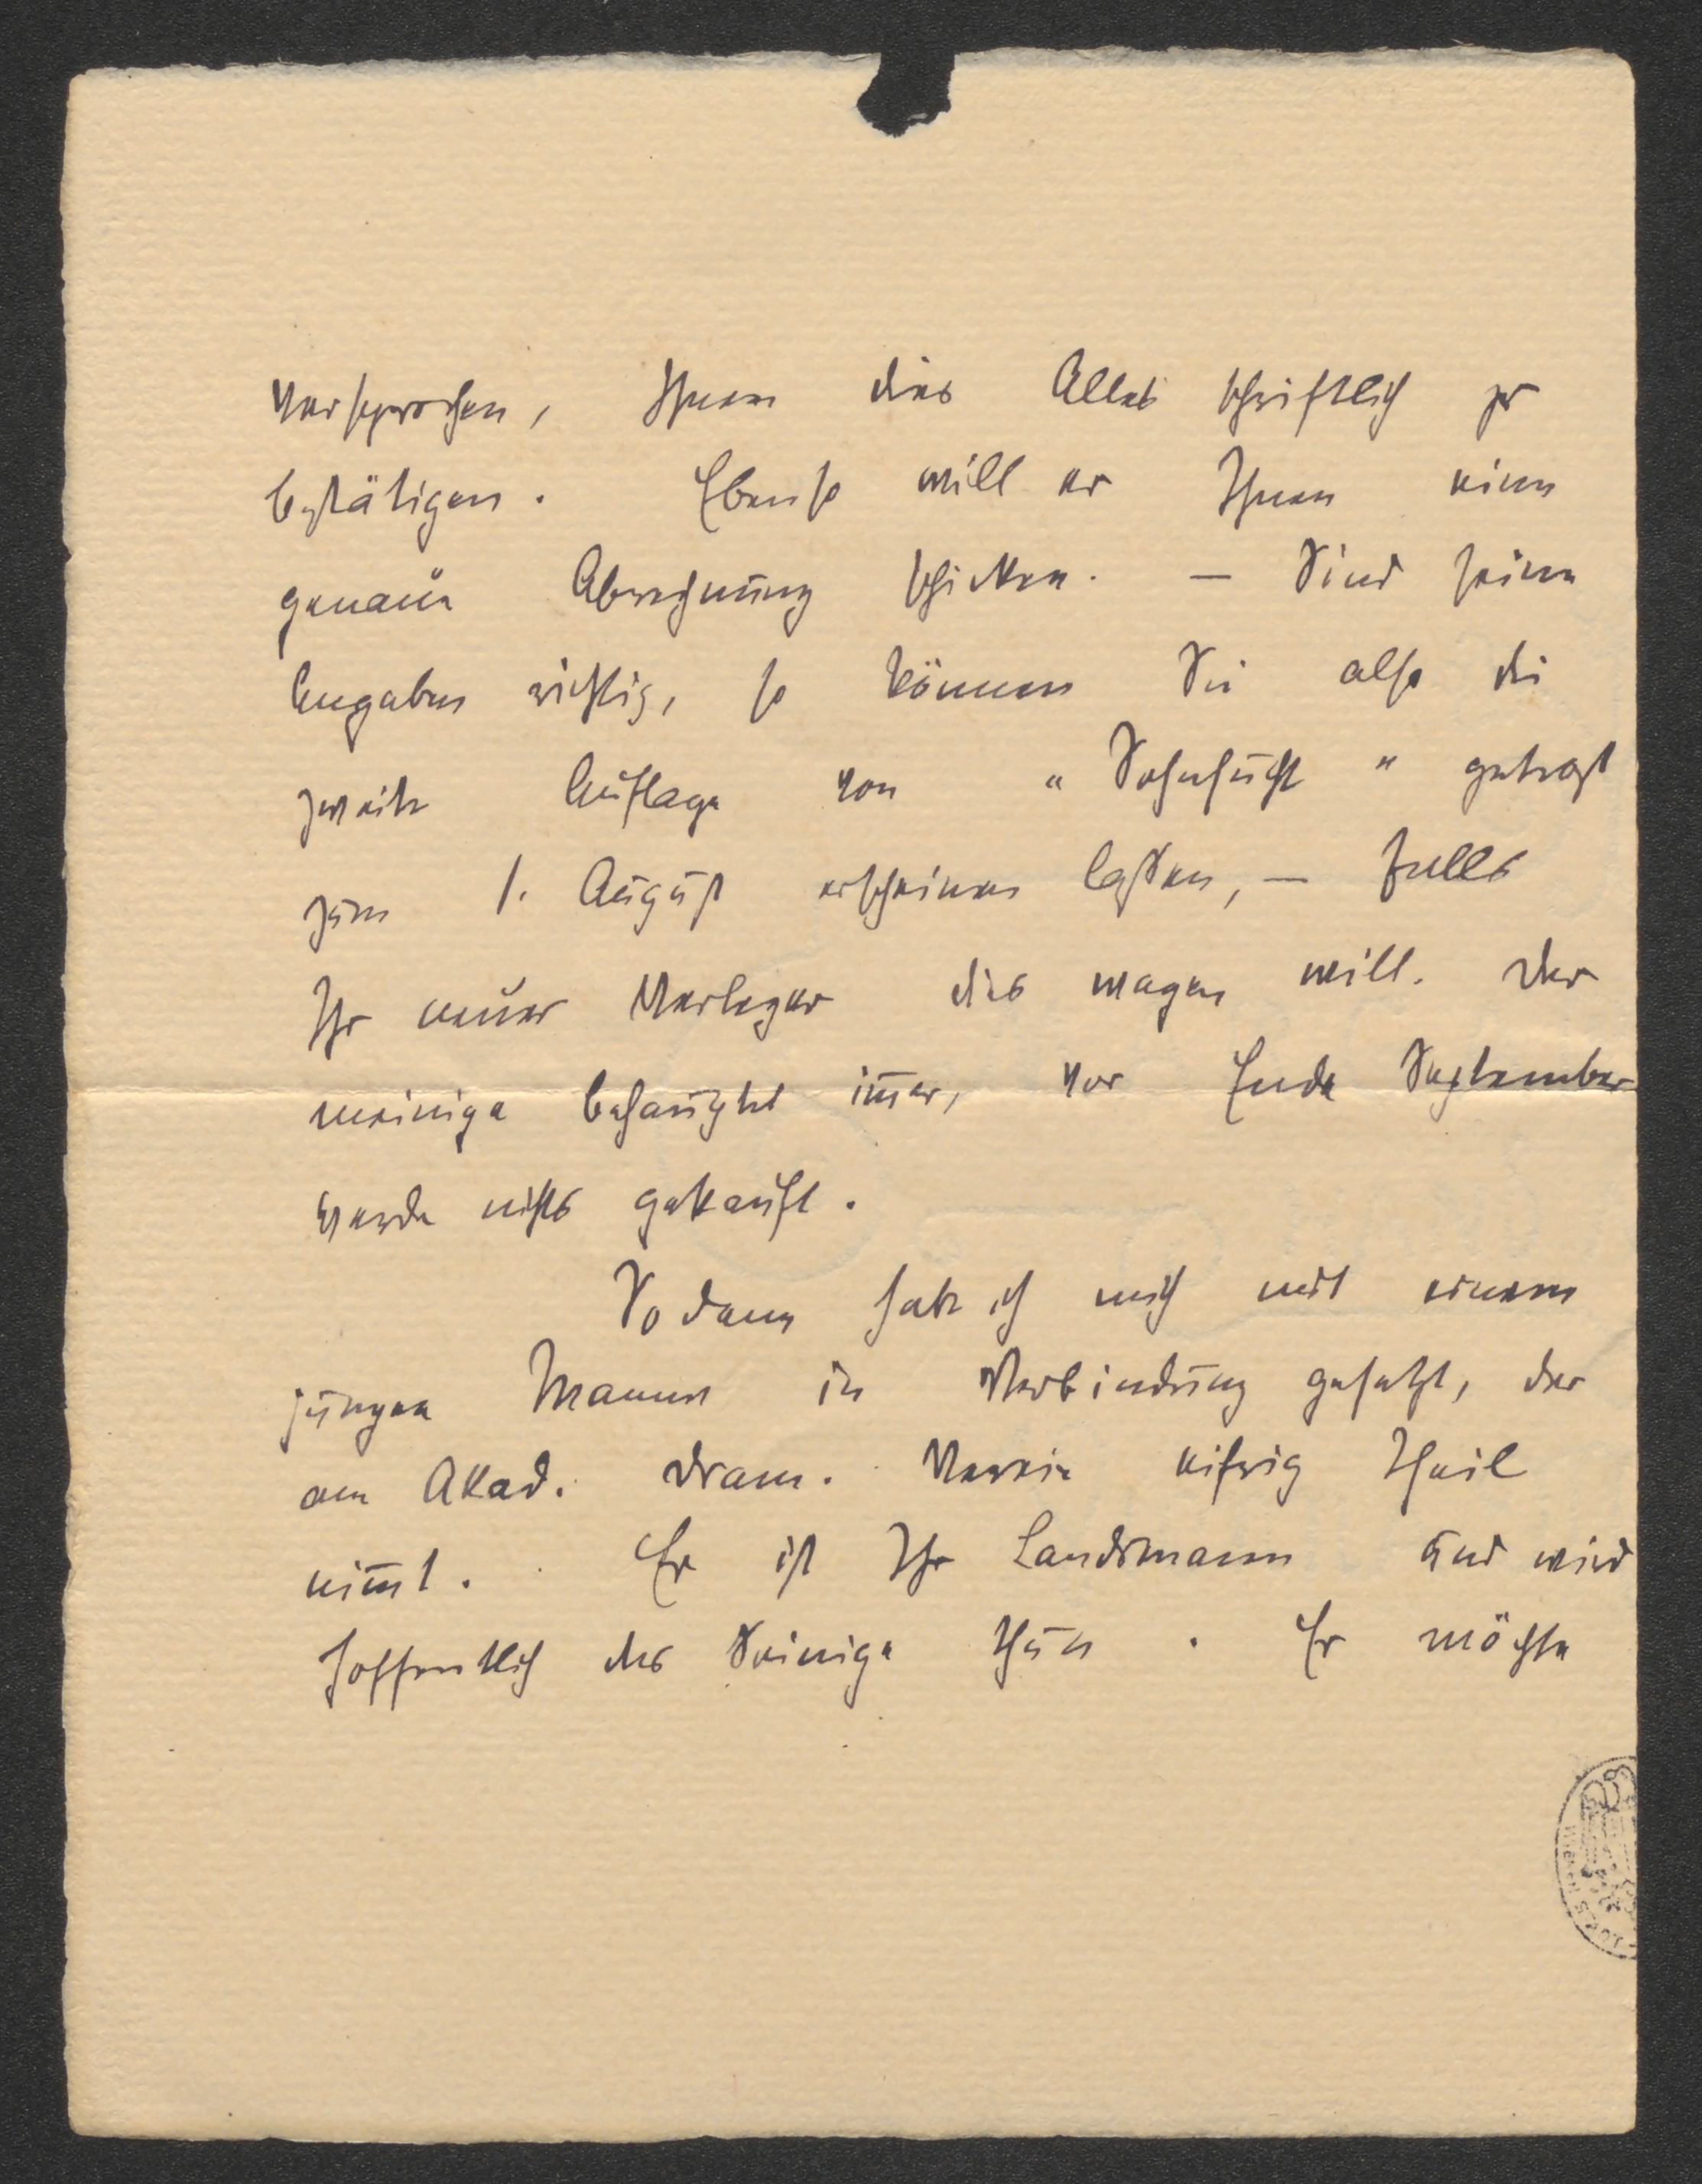 versprochen, Ihnen dies Alles schriftlich zu
bestätigen. Ebenso will er Ihnen eine
genaue Abrechnung schicken. — Sind seine
Angaben richtig, so können Sie also die
zweite Auflage von "Sehnsucht" getrost
zum 1. August erscheinen lassen, — falls
Ihr neuer Verleger dies wagen will. Der
meinige behauptet im̅er, vor Ende September
werde nichts gekauft.
Sodann habe ich mich mit einem
jungen Manne in Verbindung gesetzt, der
am Akad. Dram. Verein eifrig Theil
nim̅t. Er ist Ihr Landsmann und wird
hoffentlich das Seinige thun. Er möchte